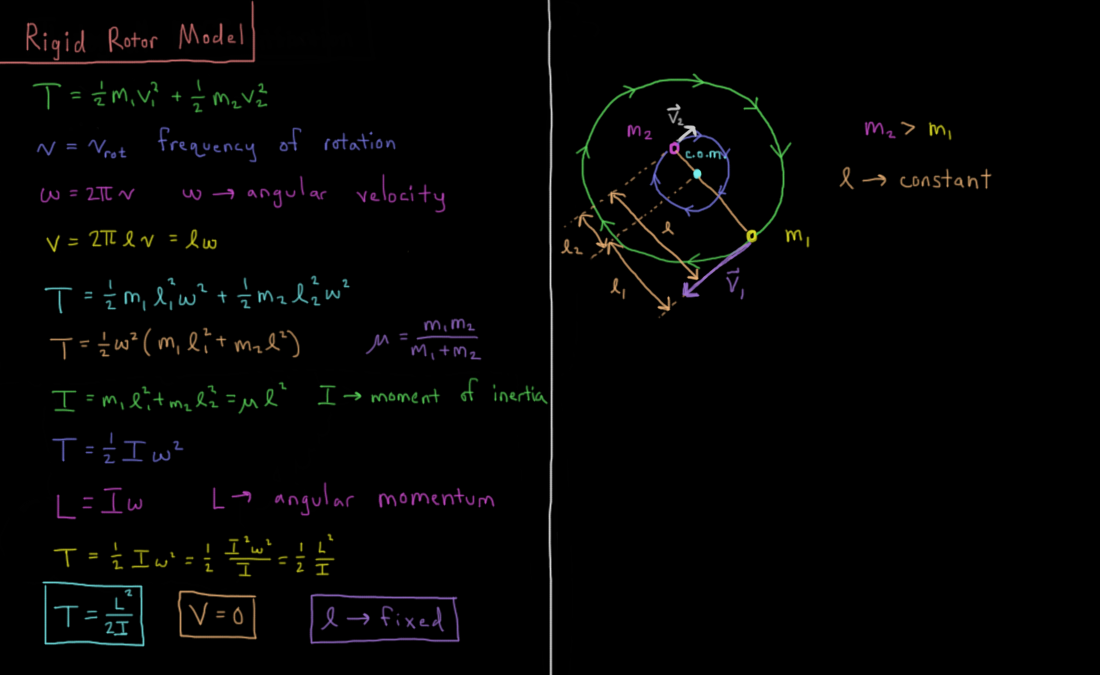 Rigid Rotor Model
T = ½ m₁v₁² + ½ m₂v₂²
ν = ν_rot frequency of rotation
ω = 2πν ω → angular velocity
v = 2πlν = lω
T = ½ m₁ l₁² ω² + ½ m₂ l₂² ω²
T = ½ ω² (m₁ l₁² + m₂ l²) μ = m₁m₂ / m₁+m₂
I = m₁ l₁² + m₂ l₂² = μ l² I → moment of inertia
T = ½ I ω²
L = Iω L → angular momentum
T = ½ I ω² = ½ I²ω²/I = ½ L²/I
T = L²/2I V = 0 l → fixed
v⃗₂
m₂
c.o.m
l
l₂
l₁
m₁
v⃗₁
m₂ > m₁
l → constant